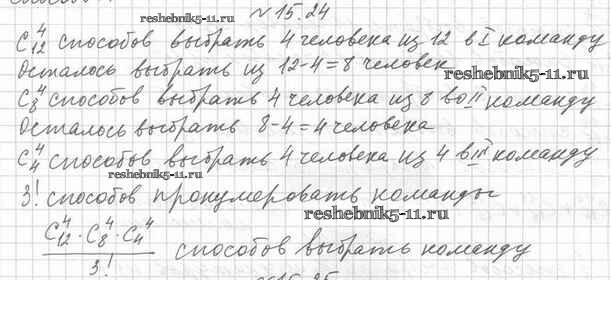 reshebnik5-11.ru
№ 15.24
C₁₂⁴ способов выбрать 4 человека из 12 в I команду
Осталось выбрать из 12-4=8 человек
reshebnik5-11.ru
C₈⁴ способов выбрать 4 человека из 8 во II команду
Осталось выбрать 8-4=4 человека
C₄⁴ способов выбрать 4 человека из 4 в III команду
reshebnik5-11.ru
3! способов пронумеровать команды
reshebnik5-11.ru
C₁₂⁴ · C₈⁴ · C₄⁴
3!
способов выбрать команду